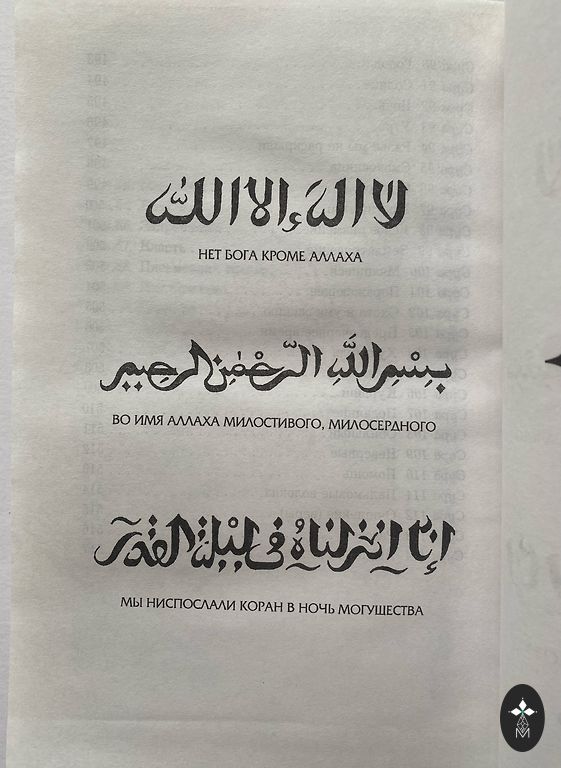 لا اله إلا الله
НЕТ БОГА КРОМЕ АЛЛАХА
بِسْمِ اللَّهِ الرَّحْمٰنِ الرحيم
ВО ИМЯ АЛЛАХА МИЛОСТИВОГО, МИЛОСЕРДНОГО
إنا انزلناهُ في ليلة القدر
МЫ НИСПОСЛАЛИ КОРАН В НОЧЬ МОГУЩЕСТВА
M